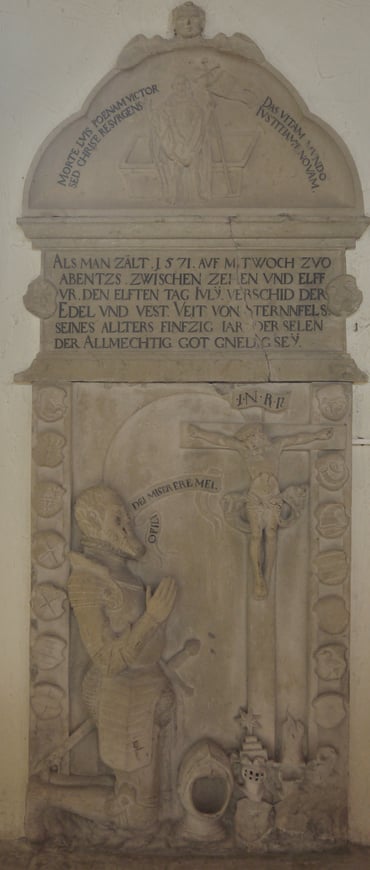 MORTE LVIS POENAM VICTOR
SED CHRISTE RESVRGENS
DAS VITAM MVNDO
IVSTITIAMQ NOVAM.
ALS MAN ZÄLT .1571. AVF MITWOCH ZVO
ABENTZS. ZWISCHEN ZEHEN VND ELFF
VR. DEN ELFTEN TAG IVLŸ VERSCHID DER
EDEL VND VEST. VEIT VON STERNNFELS
SEINES ALLTERS FINFZIG IAR DER SELEN
DER ALLMECHTIG GOT GNEDIG SEŸ.
I·N·R·I
O FILI DEI MISERERE MEI.